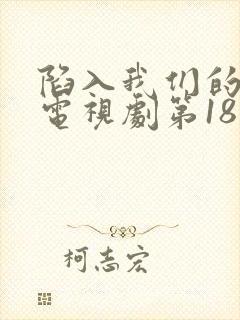 陷入我们的
電視劇第18
柯志宏